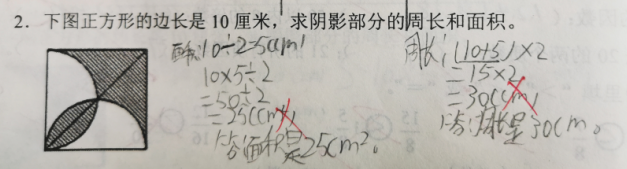 2. 下图正方形的边长是 10 厘米，求阴影部分的周长和面积。
面积：10÷2=5(cm)
10×5÷2
=50÷2
=25(cm²)
答：面积是25cm²。
周长：(10+5)×2
=15×2
=30(cm)
答：周长是30cm。